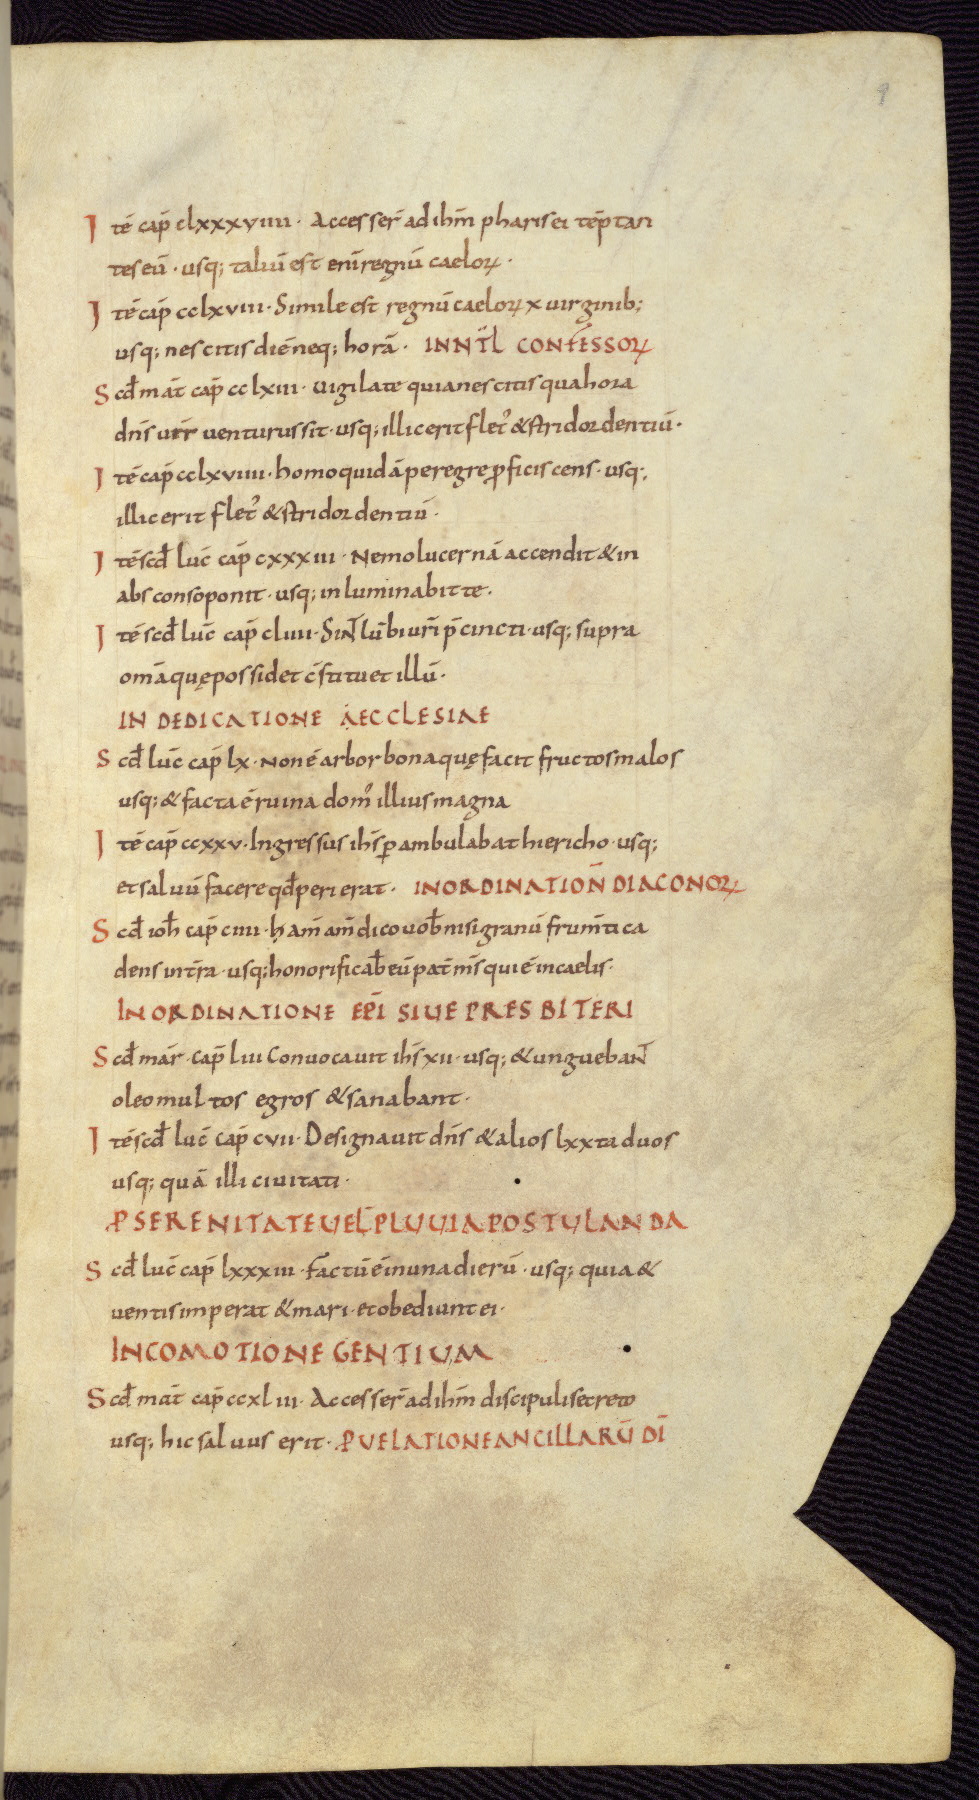 9
Itē cap̄ clxxxviiii · Accesser̄ ad ihm̄ pharisei tēptan
tes eū · usq; taliū est enī regnū caeloꝝ ·
Itē cap̄ cclxviii · Simile est regnū caeloꝝ x uirginib;
usq; nescitis diē neq; horā · IN NT̄L CONFESSOꝝ
Scd̄ mat̄ cap̄ cclxiii · Uigilate quia nescitis qua hora
dn̄s ur̄ uenturus sit · usq; illic erit flet᾿ & stridor dentiū ·
Itē cap̄ cclxviiii · homo quidā peregre ꝓficiscens · usq;
illic erit flet᾿ & stridor dentiū ·
Itē scd̄ luc̄ cap̄ cxxxiii · Nemo lucernā accendit & in
absconso ponit · usq; inluminabit te ·
Itē scd̄ luc̄ cap̄ clviii · Sint̄ lūbi ur̄i p̄cincti · usq; supra
om̄a quę possidet c̄stituet illū ·
IN DEDICATIONE AECCLESIAE
Scd̄ luc̄ cap̄ lx · Non ē arbor bona quę facit fructos malos
usq; & facta ē ruina dom᾿ illius magna
Itē cap̄ ccxxv · Ingressus ihs̄ ꝑambulabat hiericho · usq;
et saluū facere qd̄ perierat · IN ORDINATION̄ DIACONOꝝ
Scd̄ ioh̄ cap̄ ciiii · ham̄ am̄ dico uob̄ nisi granū frum̄ti ca
dens in t̄ra · usq; honorificab̄ eū pat̄ m̄s qui ē in caelis ·
IN ORDINATIONE EP̄I SIUE PRESBITERI
Scd̄ mar̄ · cap̄ liii Conuocauit ihs̄ xii · usq; & unguebant
oleo multos egros & sanabant ·
Itē scd̄ luc̄ cap̄ cvii · Designauit dn̄s & alios lxxta duos
usq; quā illi ciuitati ·
ꝑ SERENITATE UEL PLUUIA POSTULANDA
Scd̄ luc̄ cap̄ lxxxiii · factū ē in una dierū · usq; quia &
uentis imperat & mari · et obediunt ei ·
IN COMOTIONE GENTIUM
Scd̄ mat̄ cap̄ ccxliii · Accesser̄ ad ihm̄ discipuli secreto
usq; hic saluus erit · ꝑ UELATIONE ANCILLARŪ DĪ